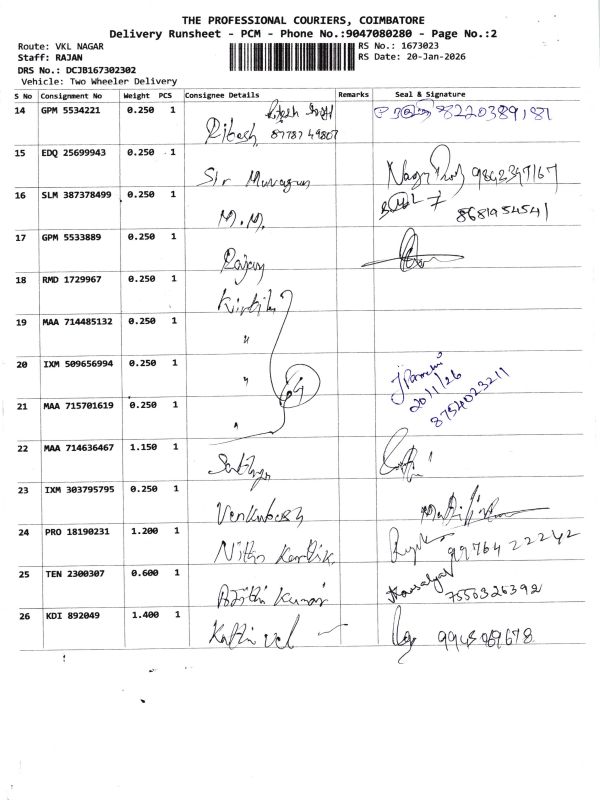 THE PROFESSIONAL COURIERS, COIMBATORE
Delivery Runsheet - PCM - Phone No.:9047080280 - Page No.:2
Route: VKL NAGAR
Staff: RAJAN
DRS No.: DCJB167302302
Vehicle: Two Wheeler Delivery
RS No.: 1673023
RS Date: 20-Jan-2026
S No Consignment No Weight PCS Consignee Details Remarks Seal & Signature
14 GPM 5534221 0.250 1 Ritesh 87787 49807 8220389181
15 EDQ 25699943 0.250 1 Sir Murugan 9842347167
16 SLM 387378499 0.250 1 M.M. 8681954541
17 GPM 5533889 0.250 1 Rajan
18 RMD 1729967 0.250 1
19 MAA 714485132 0.250 1 "
20 IXM 509656994 0.250 1 " 20/1/26
21 MAA 715701619 0.250 1 " 8754023211
22 MAA 714636467 1.150 1
23 IXM 303795795 0.250 1
24 PRO 18190231 1.200 1 Nithin Karthik 99764 22242
25 TEN 2300307 0.600 1 Ajith Kumar 7556326392
26 KDI 892049 1.400 1 9945069678